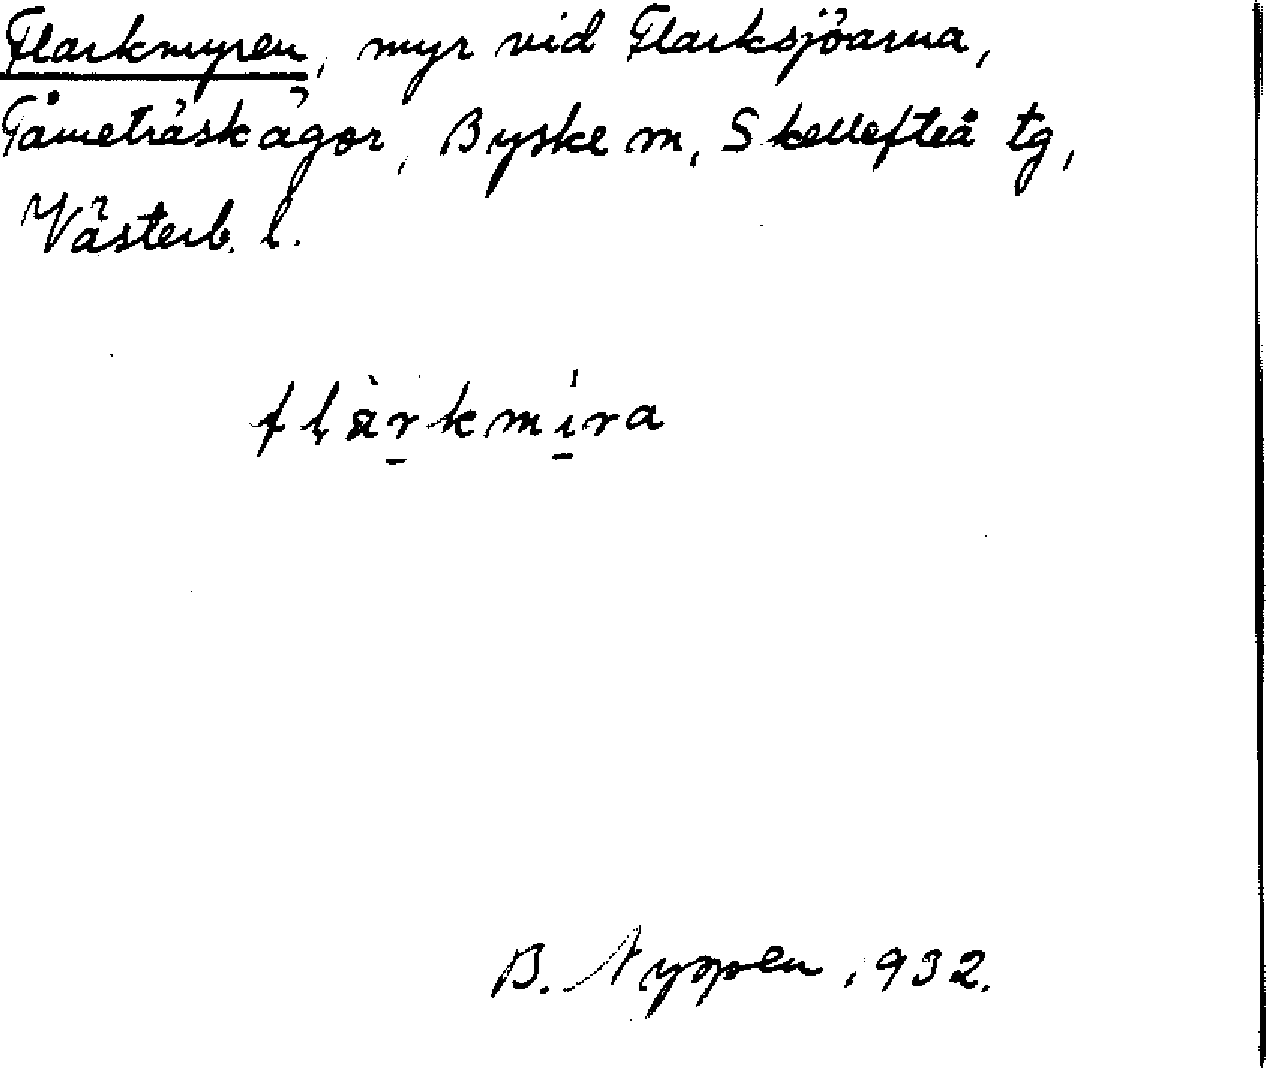 Flarkmyren, myr vid Flarksjöarna,
Tåmeträsk ägor, Byske m, Skellefteå tg,
Västerb. l.
flàrkmíra
B. Nyppen, 932.